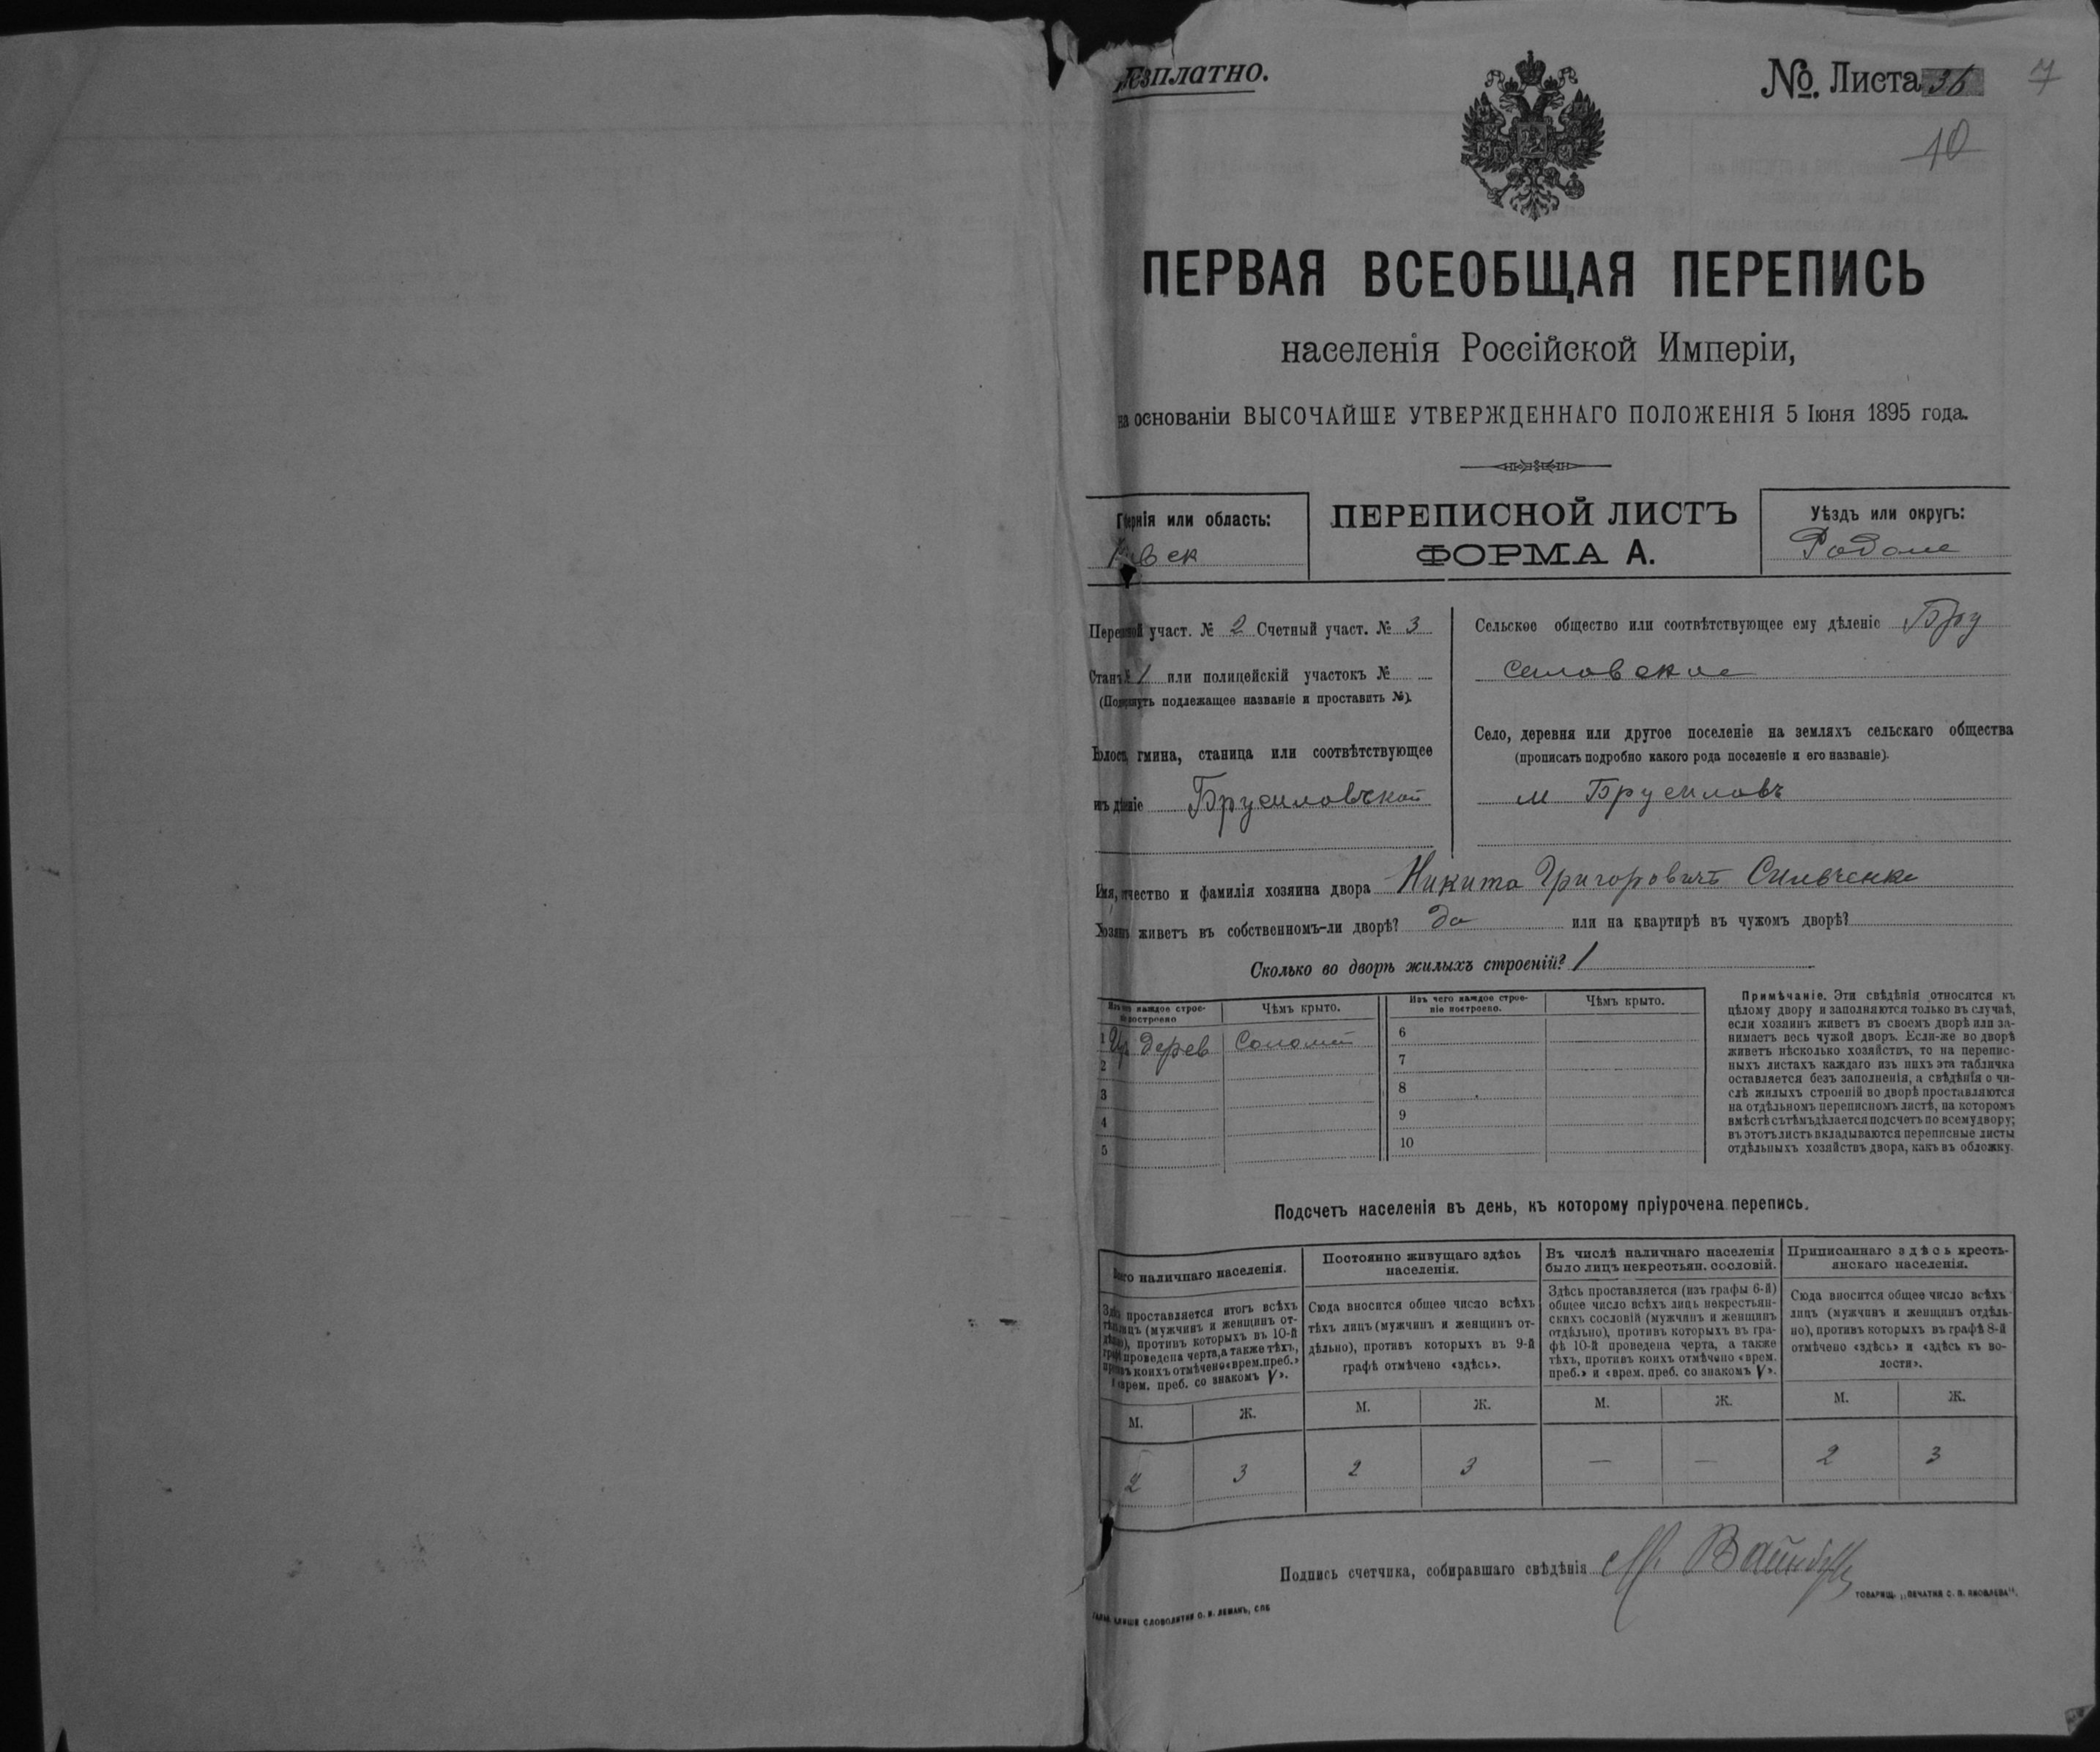 Безплатно.
№. Листа 36
7
10
ПЕРВАЯ ВСЕОБЩАЯ ПЕРЕПИСЬ
населенія Россійской Имперіи,
на основаніи ВЫСОЧАЙШЕ УТВЕРЖДЕННАГО ПОЛОЖЕНІЯ 5 Іюня 1895 года.
Губернія или область:
ПЕРЕПИСНОЙ ЛИСТЪ
ФОРМА А.
Уѣздъ или округъ:
Радом
участ. № 2 Счетный участ. № 3
Станъ 1 или полицейскій участокъ №
подлежащее названіе и проставить №).
гмина, станица или соотвѣтствующее
Брусиловской
Сельское общество или соотвѣтствующее ему дѣленіе Бру
силовское
Село, деревня или другое поселеніе на земляхъ сельскаго общества
(прописать подробно какого рода поселеніе и его названіе).
м Брусиловъ
Имя, отчество и фамилія хозяина двора Никита Григоровичъ Сильченко
Хозяинъ живетъ въ собственномъ-ли дворѣ? да или на квартирѣ въ чужомъ дворѣ?
Сколько во дворѣ жилыхъ строеній? 1
каждое строе-
построено
Чѣмъ крыто.
Изъ чего каждое строе-
ніе построено.
Чѣмъ крыто.
1 дерев Солом 6
2 7
3 8
4 9
5 10
Примѣчаніе. Эти свѣдѣнія относятся къ
цѣлому двору и заполняются только въ случаѣ,
если хозяинъ живетъ въ своемъ дворѣ или за-
нимаетъ весь чужой дворъ. Если-же во дворѣ
живетъ нѣсколько хозяйствъ, то на перепис-
ныхъ листахъ каждаго изъ нихъ эта табличка
оставляется безъ заполненія, а свѣдѣнія о чи-
слѣ жилыхъ строеній во дворѣ проставляются
на отдѣльномъ переписномъ листѣ, на которомъ
вмѣстѣ съ тѣмъ дѣлается подсчетъ по всему двору;
въ этотъ листъ вкладываются переписные листы
отдѣльныхъ хозяйствъ двора, какъ въ обложку.
Подсчетъ населенія въ день, къ которому пріурочена перепись.
Всего наличнаго населенія.
проставляется итогъ всѣхъ
лицъ (мужчинъ и женщинъ от-
дѣльно), противъ которыхъ въ 10-й
графѣ проведена черта, а также тѣхъ,
противъ коихъ отмѣчено «врем. преб.»
и «врем. преб. со знакомъ V».
М. Ж.
2 3
Постоянно живущаго здѣсь
населенія.
Сюда вносится общее число всѣхъ
тѣхъ лицъ (мужчинъ и женщинъ от-
дѣльно), противъ которыхъ въ 9-й
графѣ отмѣчено «здѣсь».
М. Ж.
2 3
Въ числѣ наличнаго населенія
было лицъ некрестьян. сословій.
Здѣсь проставляется (изъ графы 6-й)
общее число всѣхъ лицъ некрестьян-
скихъ сословій (мужчинъ и женщинъ
отдѣльно), противъ которыхъ въ гра-
фѣ 10-й проведена черта, а также
тѣхъ, противъ коихъ отмѣчено «врем.
преб.» и «врем. преб. со знакомъ V».
М. Ж.
— —
Приписаннаго здѣсь кресть-
янскаго населенія.
Сюда вносится общее число всѣхъ
лицъ (мужчинъ и женщинъ отдѣль-
но), противъ которыхъ въ графѣ 8-й
отмѣчено «здѣсь» и «здѣсь къ во-
лости».
М. Ж.
2 3
Подпись счетчика, собиравшаго свѣдѣнія
СЛОВОЛИТНИ О. И. ЛЕМАНЪ, СПБ
ТОВАРИЩ. „ПЕЧАТНЯ С. П. ЯКОВЛЕВА“.